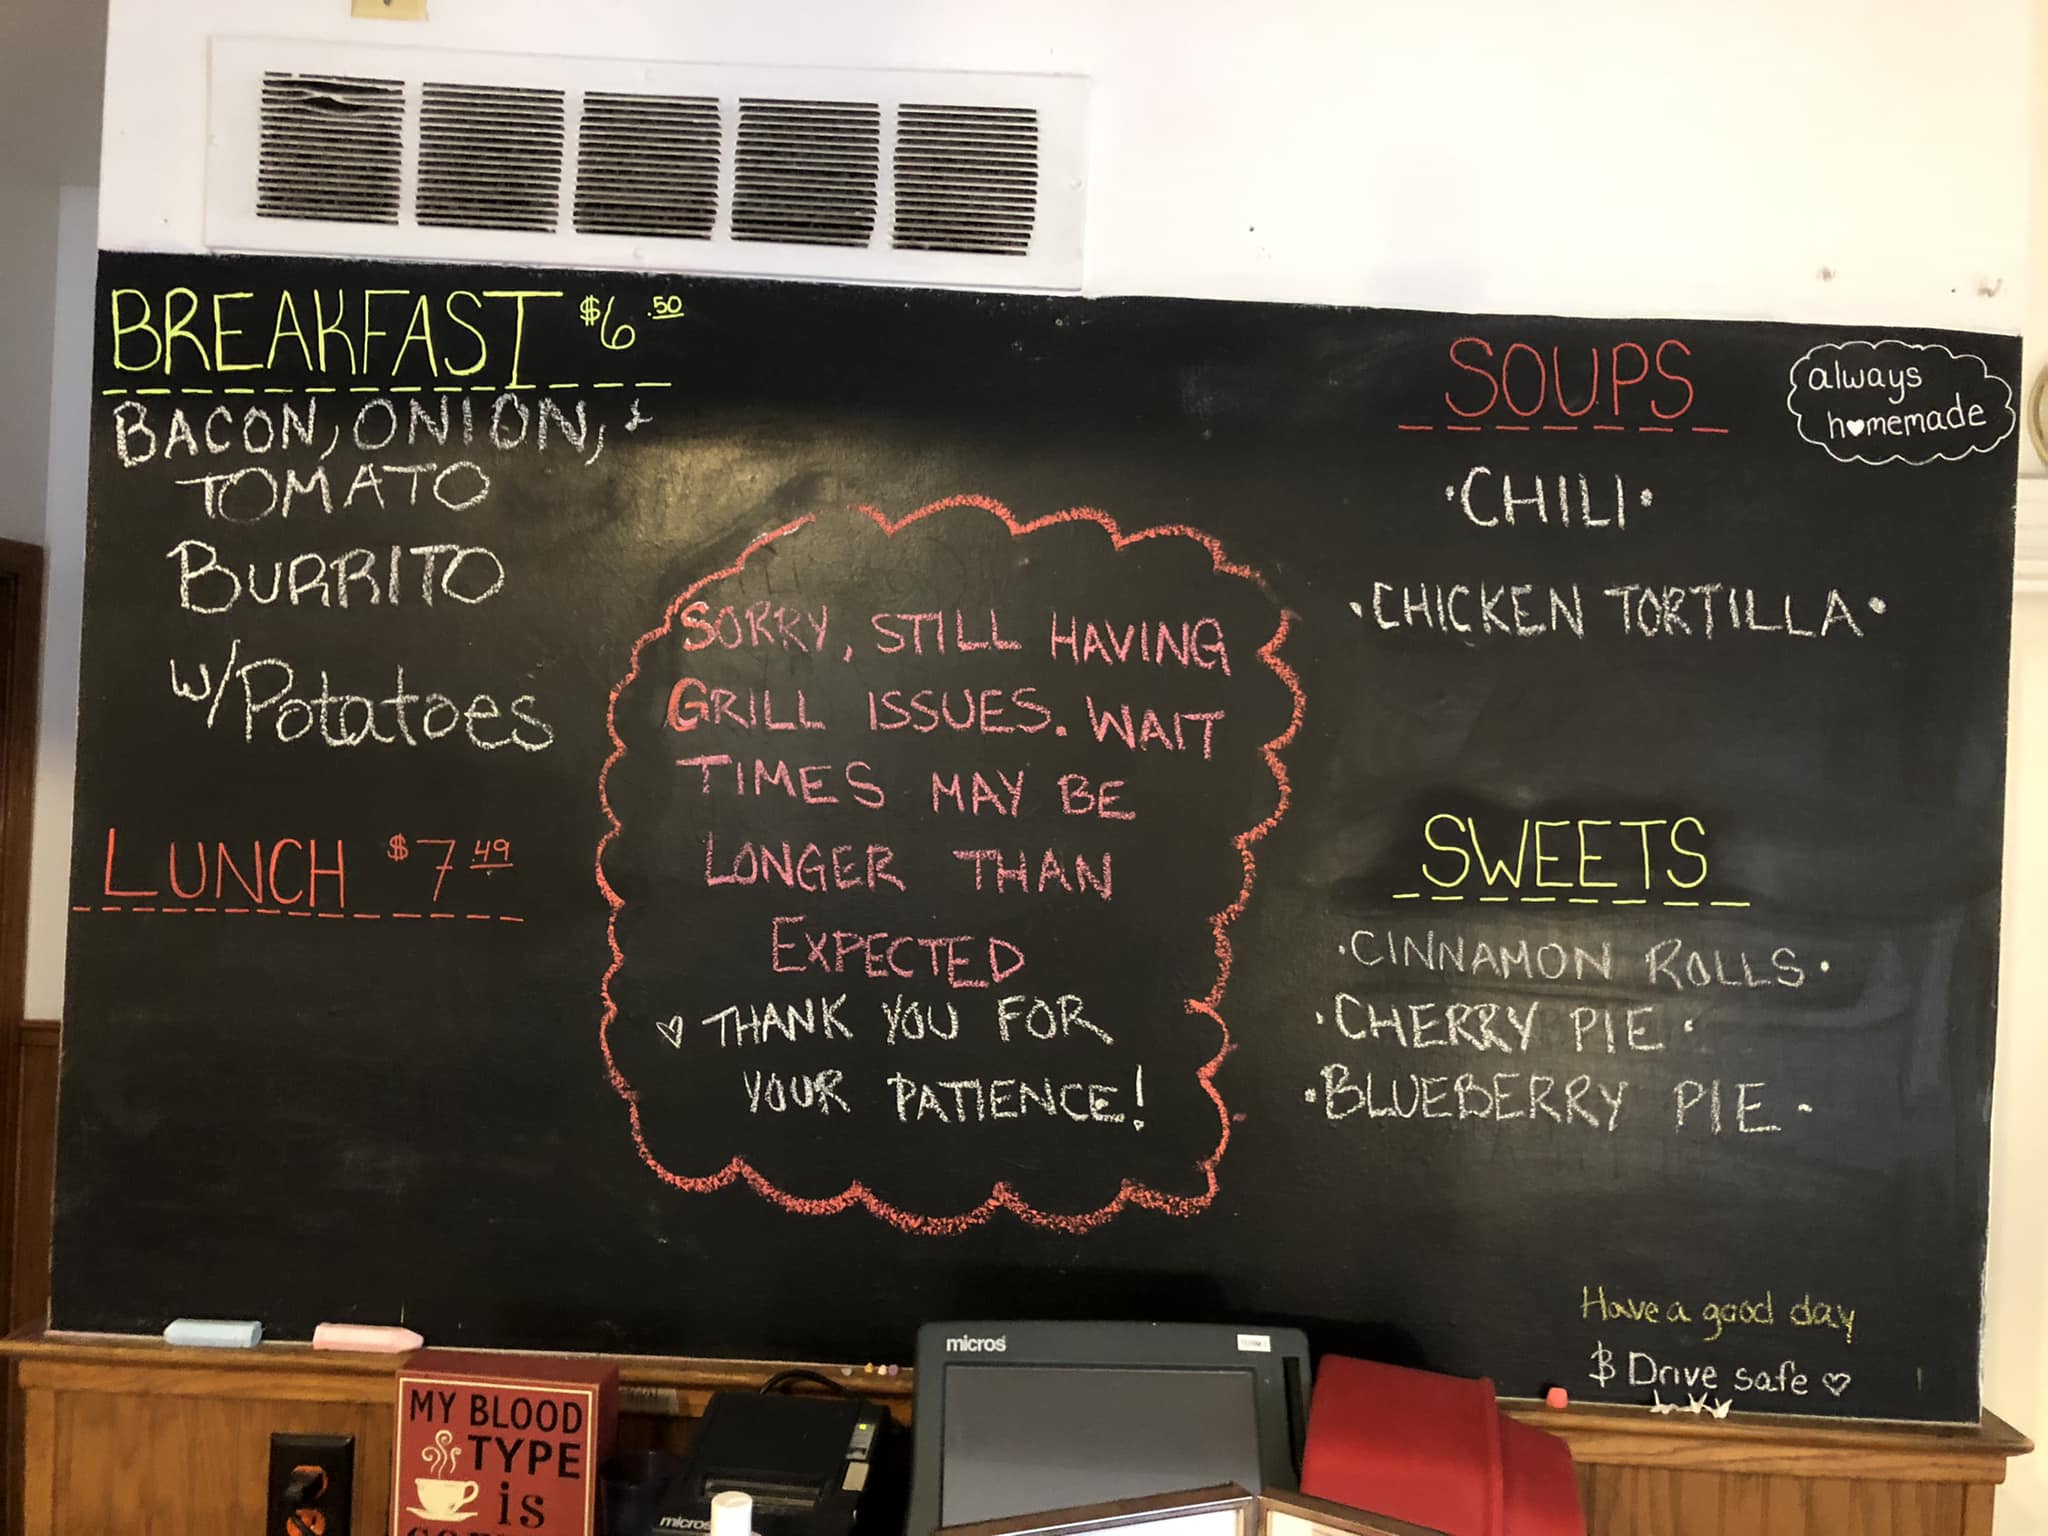 BREAKFAST $6.50
BACON, ONION, &
TOMATO
BURRITO
w/Potatoes
LUNCH $7.49
SORRY, STILL HAVING
GRILL ISSUES. WAIT
TIMES MAY BE
LONGER THAN
EXPECTED
♡ THANK YOU FOR
YOUR PATIENCE!
SOUPS
always
h♥memade
•CHILI•
•CHICKEN TORTILLA•
SWEETS
•CINNAMON ROLLS•
•CHERRY PIE•
•BLUEBERRY PIE•
Have a good day
& Drive safe ♡
MY BLOOD
TYPE
is
micros
micros